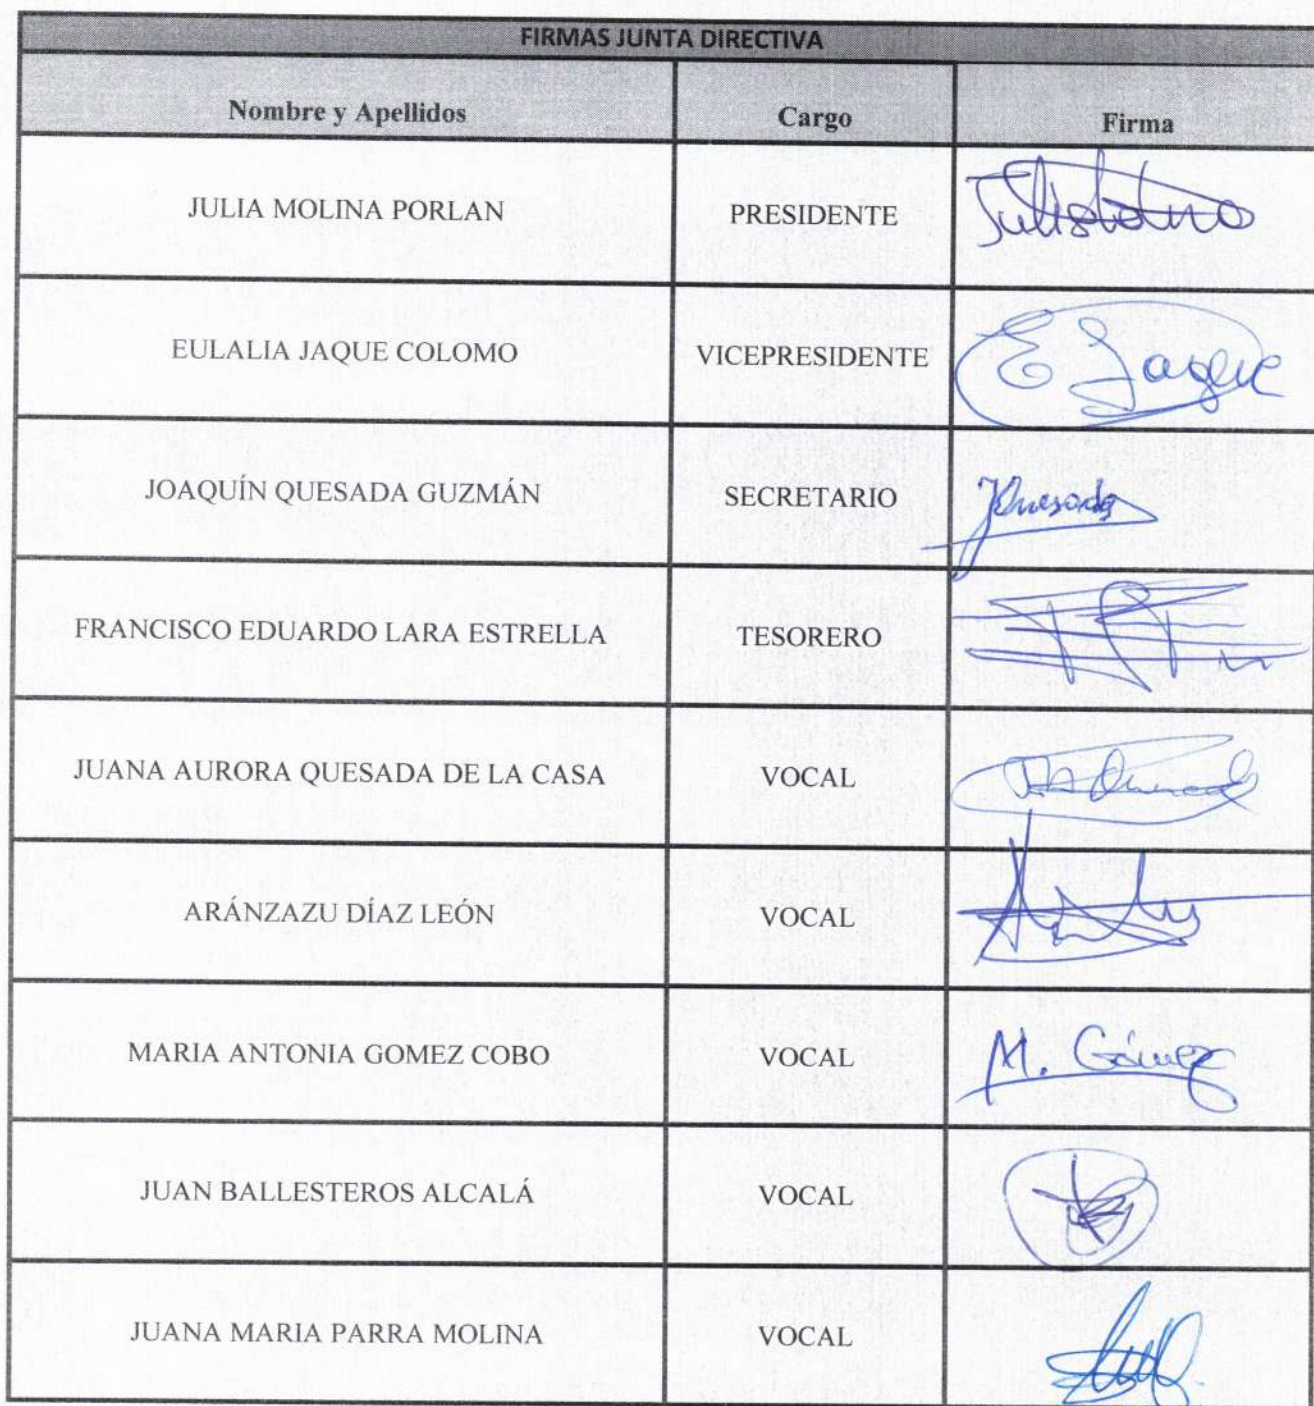 FIRMAS JUNTA DIRECTIVA
Nombre y Apellidos Cargo Firma
JULIA MOLINA PORLAN PRESIDENTE
EULALIA JAQUE COLOMO VICEPRESIDENTE E Jaque
JOAQUÍN QUESADA GUZMÁN SECRETARIO JQuesada
FRANCISCO EDUARDO LARA ESTRELLA TESORERO
JUANA AURORA QUESADA DE LA CASA VOCAL
ARÁNZAZU DÍAZ LEÓN VOCAL
MARIA ANTONIA GOMEZ COBO VOCAL M. Gómez
JUAN BALLESTEROS ALCALÁ VOCAL
JUANA MARIA PARRA MOLINA VOCAL